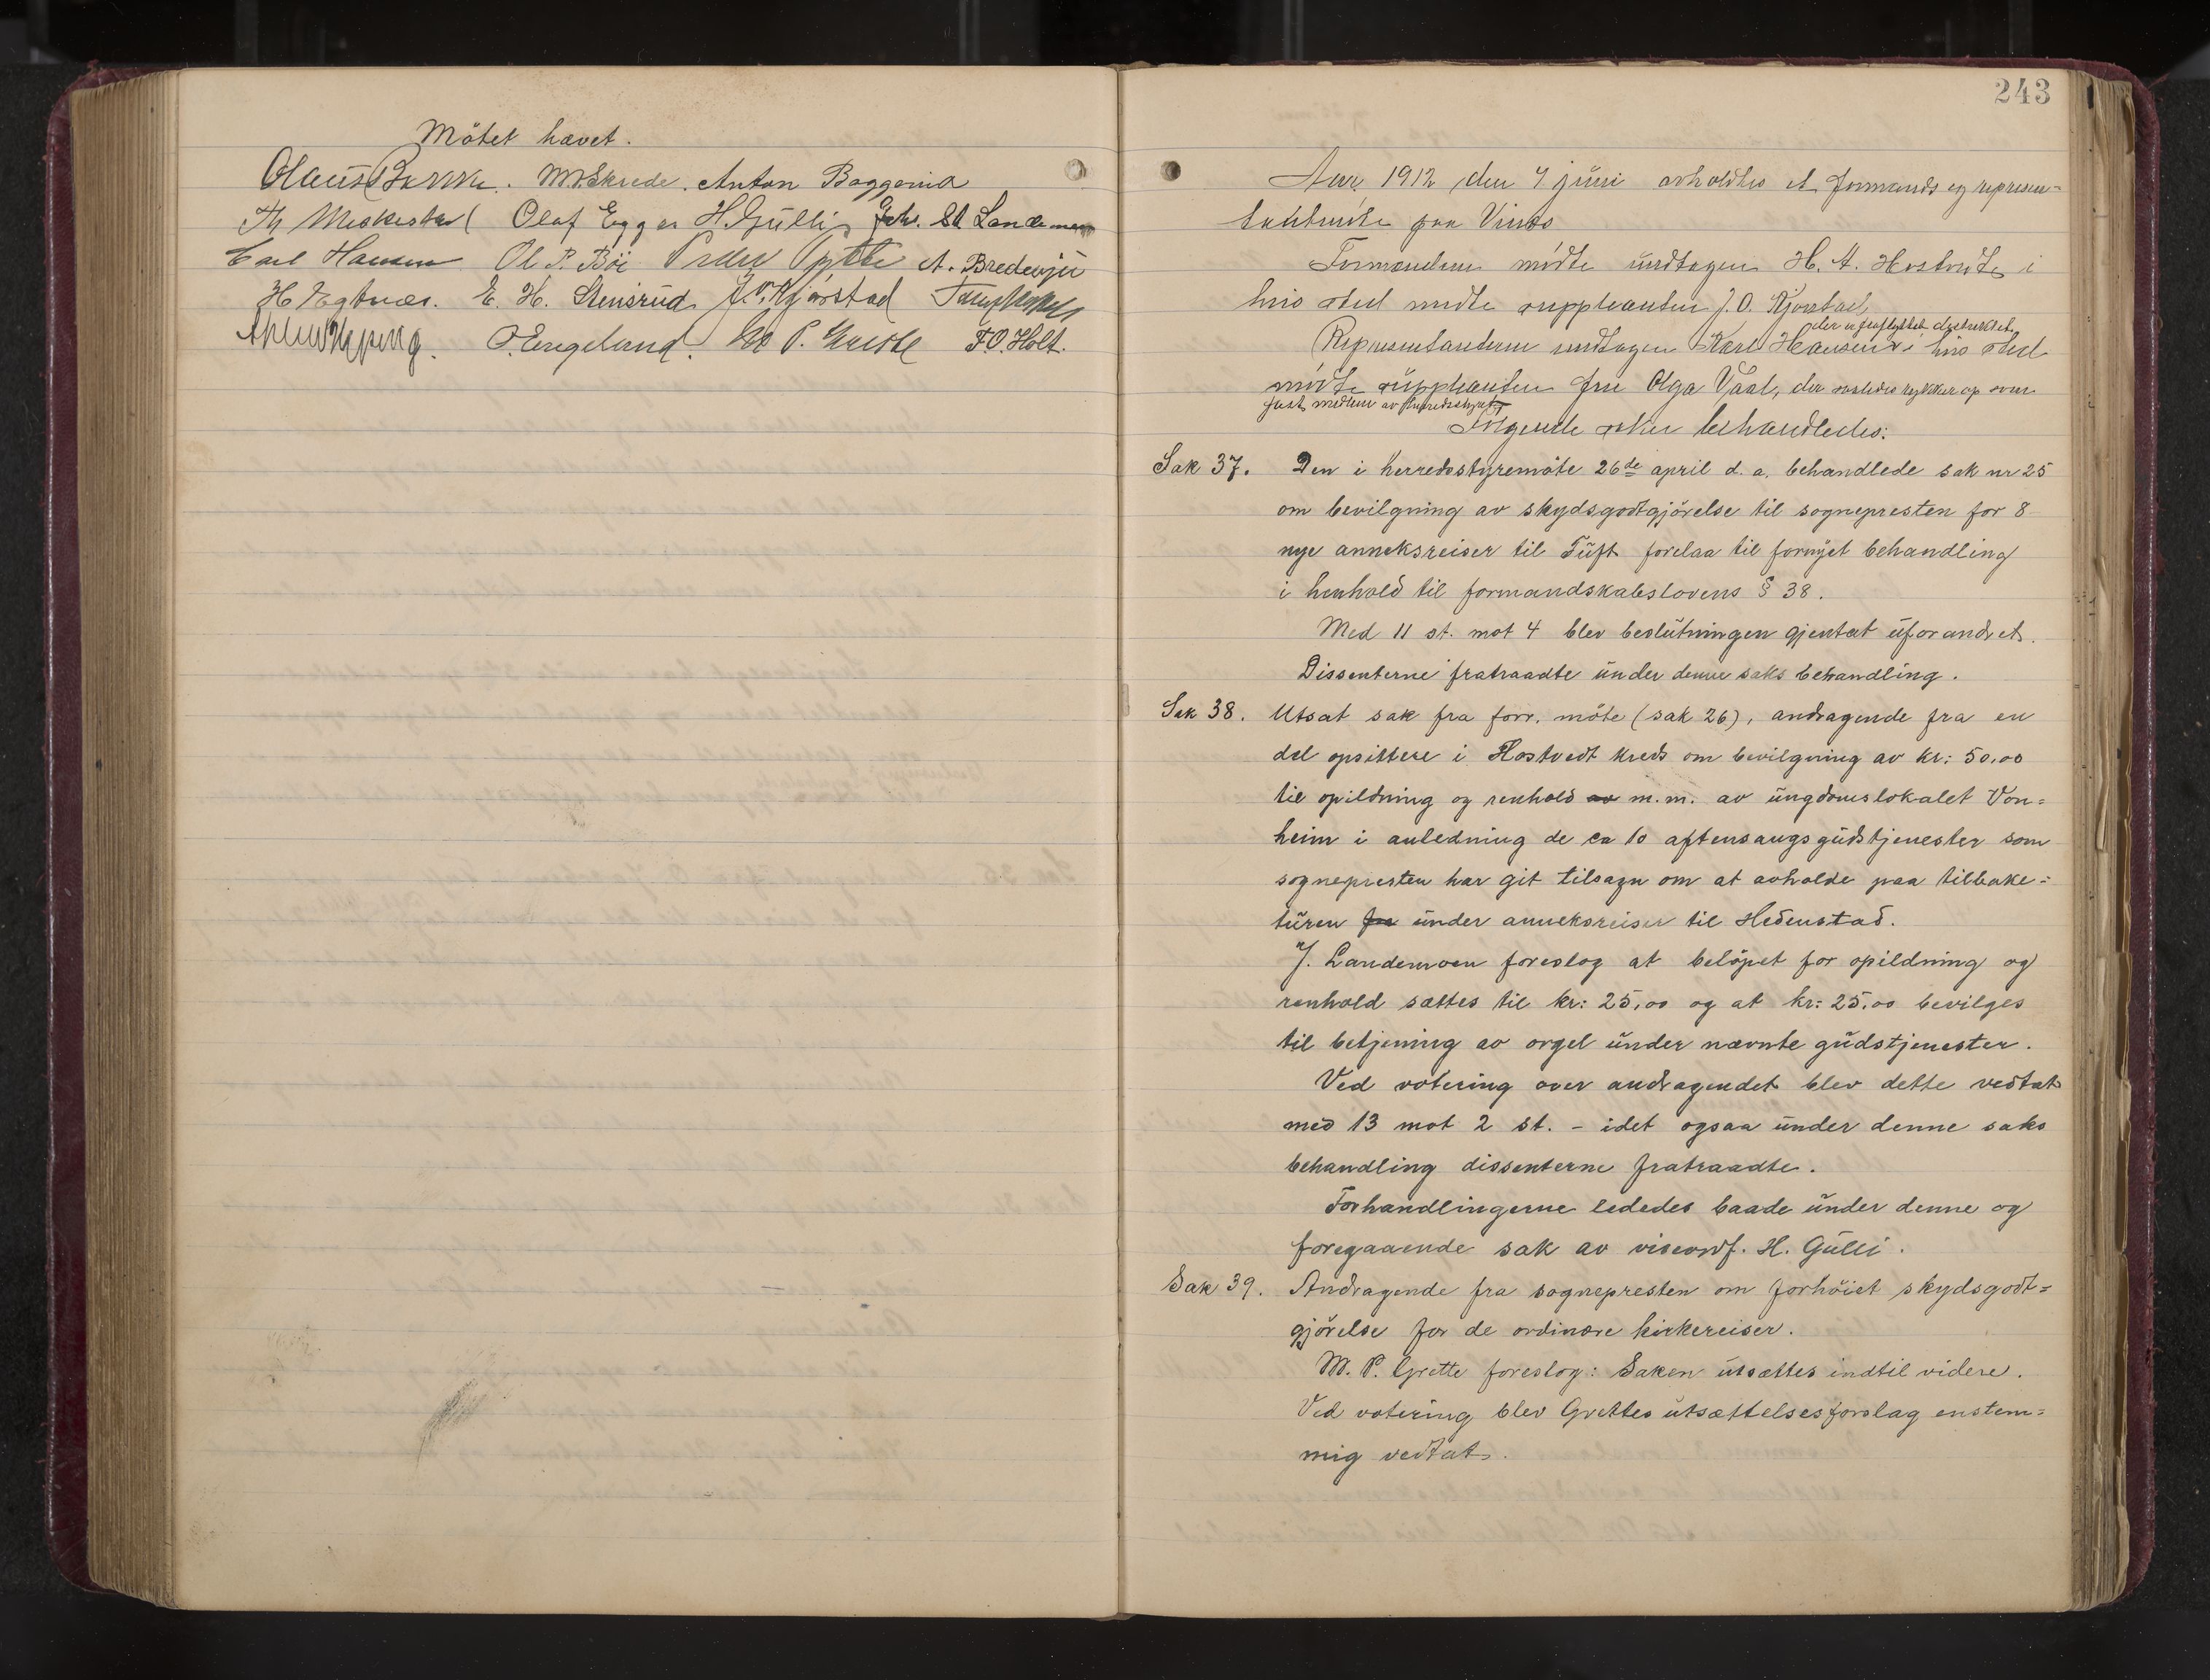 Mötet hævet.
Olaus Bakke. M. Skrede. Anton Baggerud
Th Meskestad Olaf Egger H. Gulli Joh. St Landemoen
Carl Hansen Ol P. Böe Peder A. Bredesju
H Egtvær. E. H. Stensrud J. O. Kjörstad
O. Engeland. M. P. Grette F. O. Holt.
243
Aar 1912 den 7 juni avholdtes et formands og represen=
tantmöte paa Vinæs
Formændene mödte undtagen H. A. Hostvedt, i
hvis sted mødte suppleanten J. O. Kjorstad
der er fraflyttet distriktet
Representanterne undtagen Karl Hansen i hvis sted
mödte suppleanten fru Olga Vaal, der saaledes rykker op som
fast medlem av herredsstyret
Følgende saker behandledes:
Sak 37. Den i herredsstyremöte 26de april d. a. behandlede sak nr 25
om bevilgning av skydsgodtgjörelse til sognepresten for 8
nye anneksreiser til Tuft forelaa til fornyet behandling
i henhold til formandskabslovens § 38.
Med 11 st. mot 4 blev beslutningen gjentat uforandret.
Dissenterne fratraadte under denne saks behandling.
Sak 38. Utsat sak fra forr. möte (sak 26), andragende fra en
del opsittere i Hostvedt kreds om bevilgning av kr: 50,00
til opildning og renhold av m.m. av ungdomslokalet Von=
heim i anledning de ca 10 aftensangsgudstjenester som
sognepresten har git tilsagn om at avholde paa tilbake=
turen fra under anneksreiser til Hedenstad.
J. Landemoen foreslog at belöpet for opildning og
renhold sættes til kr: 25,00 og at kr: 25,00 bevilges
til betjening av orgel under nævnte gudstjenester.
Ved votering over andragendet blev dette vedtat
med 13 mot 2 st. - idet ogsaa under denne saks
behandling dissenterne fratraadte.
Forhandlingerne lededes baade under denne og
foregaaende sak av viseordf. H. Gulli.
Sak 39. Andragende fra sognepresten om forhöiet skydsgodt=
gjörelse for de ordinære kirkereiser.
M. P. Grette foreslog: Saken utsættes indtil videre.
Ved votering blev Grettes utsættelsesforslag enstem=
mig vedtat.